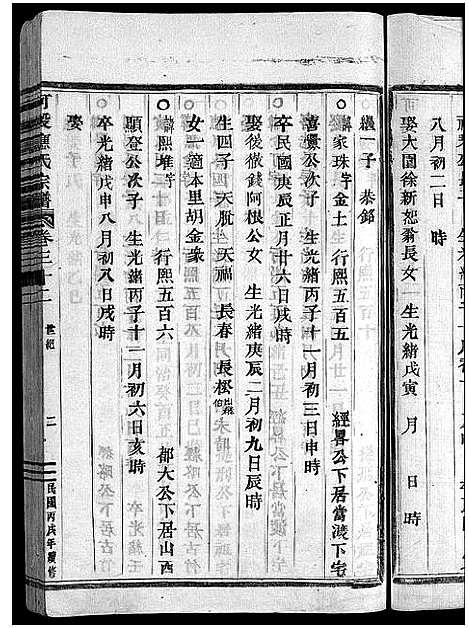 八月初二日 時
娶大園徐新恕翁長女 生光緒戊寅 月 日 時
繼一子 恭銘
諱家珠字金土 行熙五百五 經畧公下居當淩下宅
喜靈公次子 生光緒丙子十一月初三日申時
卒民國庚辰正月廿六日戌時
娶後徵錢阿根公女 生光緒庚辰二月初九日辰時
生四子 天脫 天福 長春 長根出嗣
女一適本里胡金彖
諱熙堆字 行熙五百六 都大公下居山西
顯登公次子 生光緒丙子十二月初六日亥時
卒光緒戊申八月初八日戌時
娶
應氏宗譜 卷三十二 世紀
民國丙戌年續修